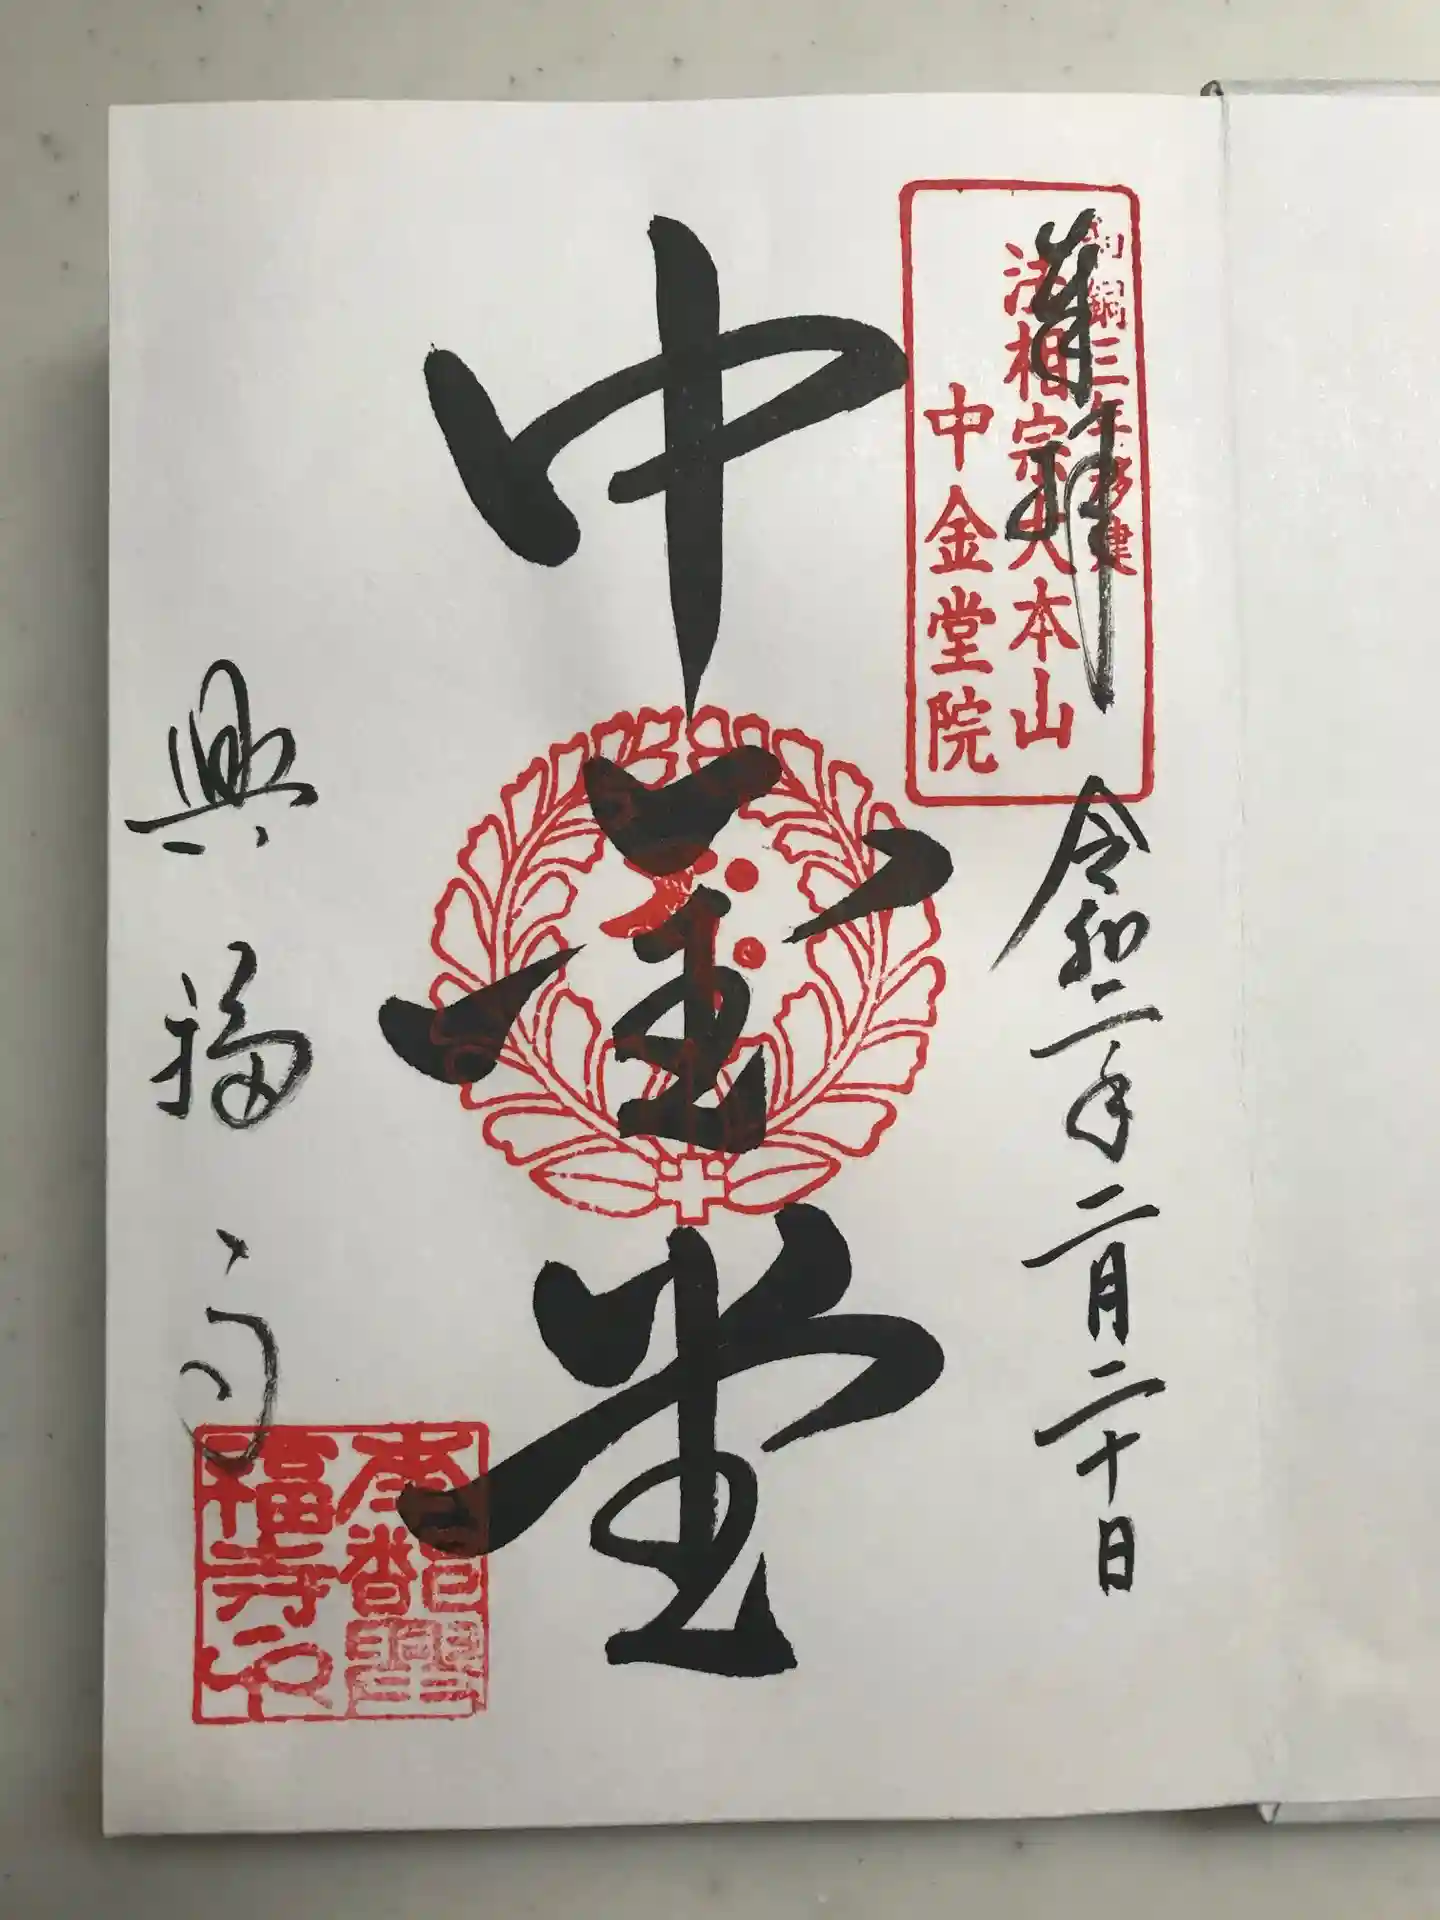 奉拝
和銅三年移建
法相宗大本山
中金堂院
令和二年二月二十日
中金堂
興福寺
南都興
福寺印